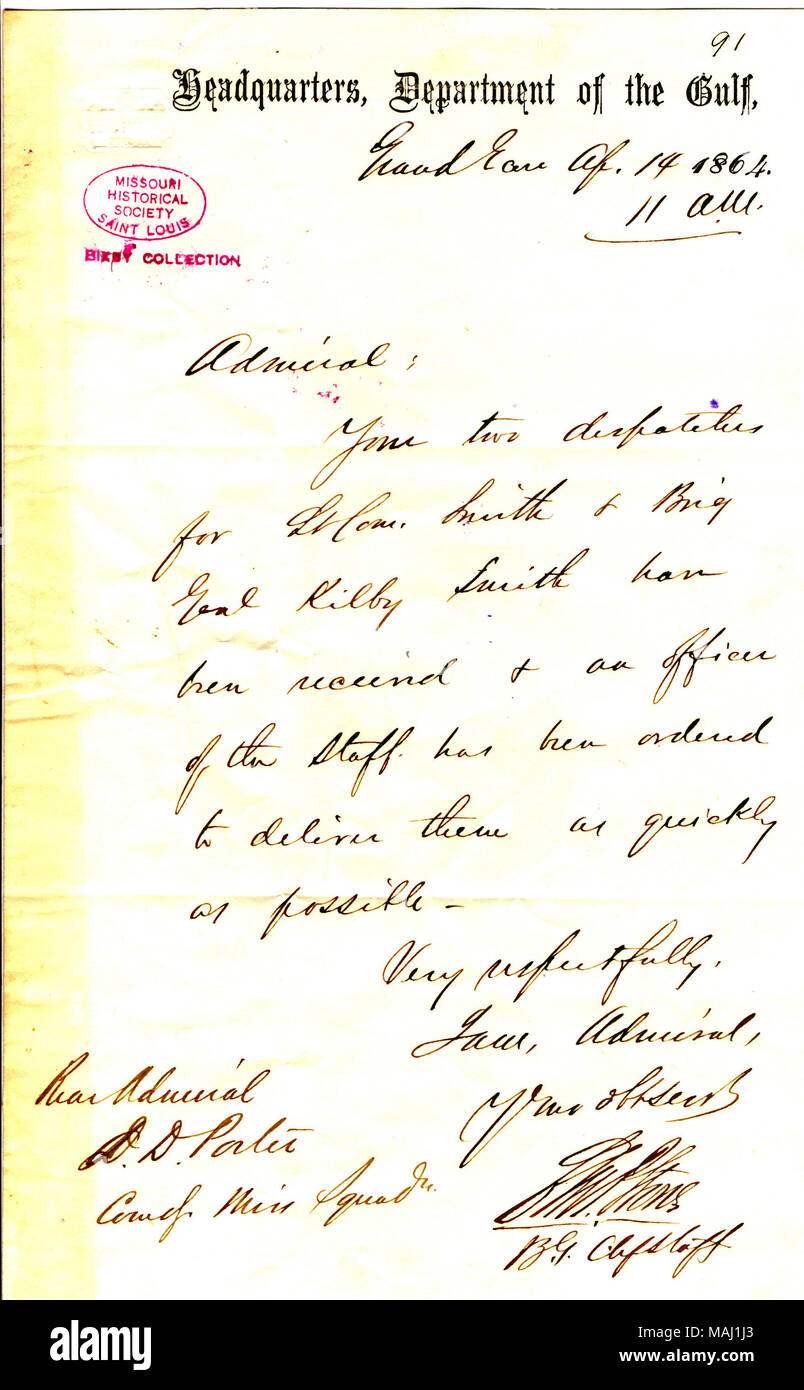 91
Headquarters, Department of the Gulf,
Grand Ecore Ap. 14 1864.
11 a.m.
MISSOURI
HISTORICAL
SOCIETY
SAINT LOUIS
BIXBY COLLECTION
Admiral;
Your two despatches
for Lt Com. Smith & Brig
Genl Kilby Smith have
been received & an officer
of the Staff. has been ordered
to deliver them as quickly
as possible –
Very respectfully.
I am, Admiral,
Your obt servt
Rear Admiral
D. D. Porter
Comdg. Miss Squadn.
Stone
B.G. Chf Staff
a alamy stock photo
Image ID: MAJ1J3
www.alamy.com